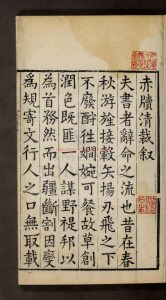 赤牘清裁叙
夫書者辭命之流也昔在春
秋游接轂矢揚刃飛之下
不廢酬往嫺婉可餐故草創
潤色既匪一人謀野邦以
為首務然而出疆斷割因變
為規寄文行人之口無取載